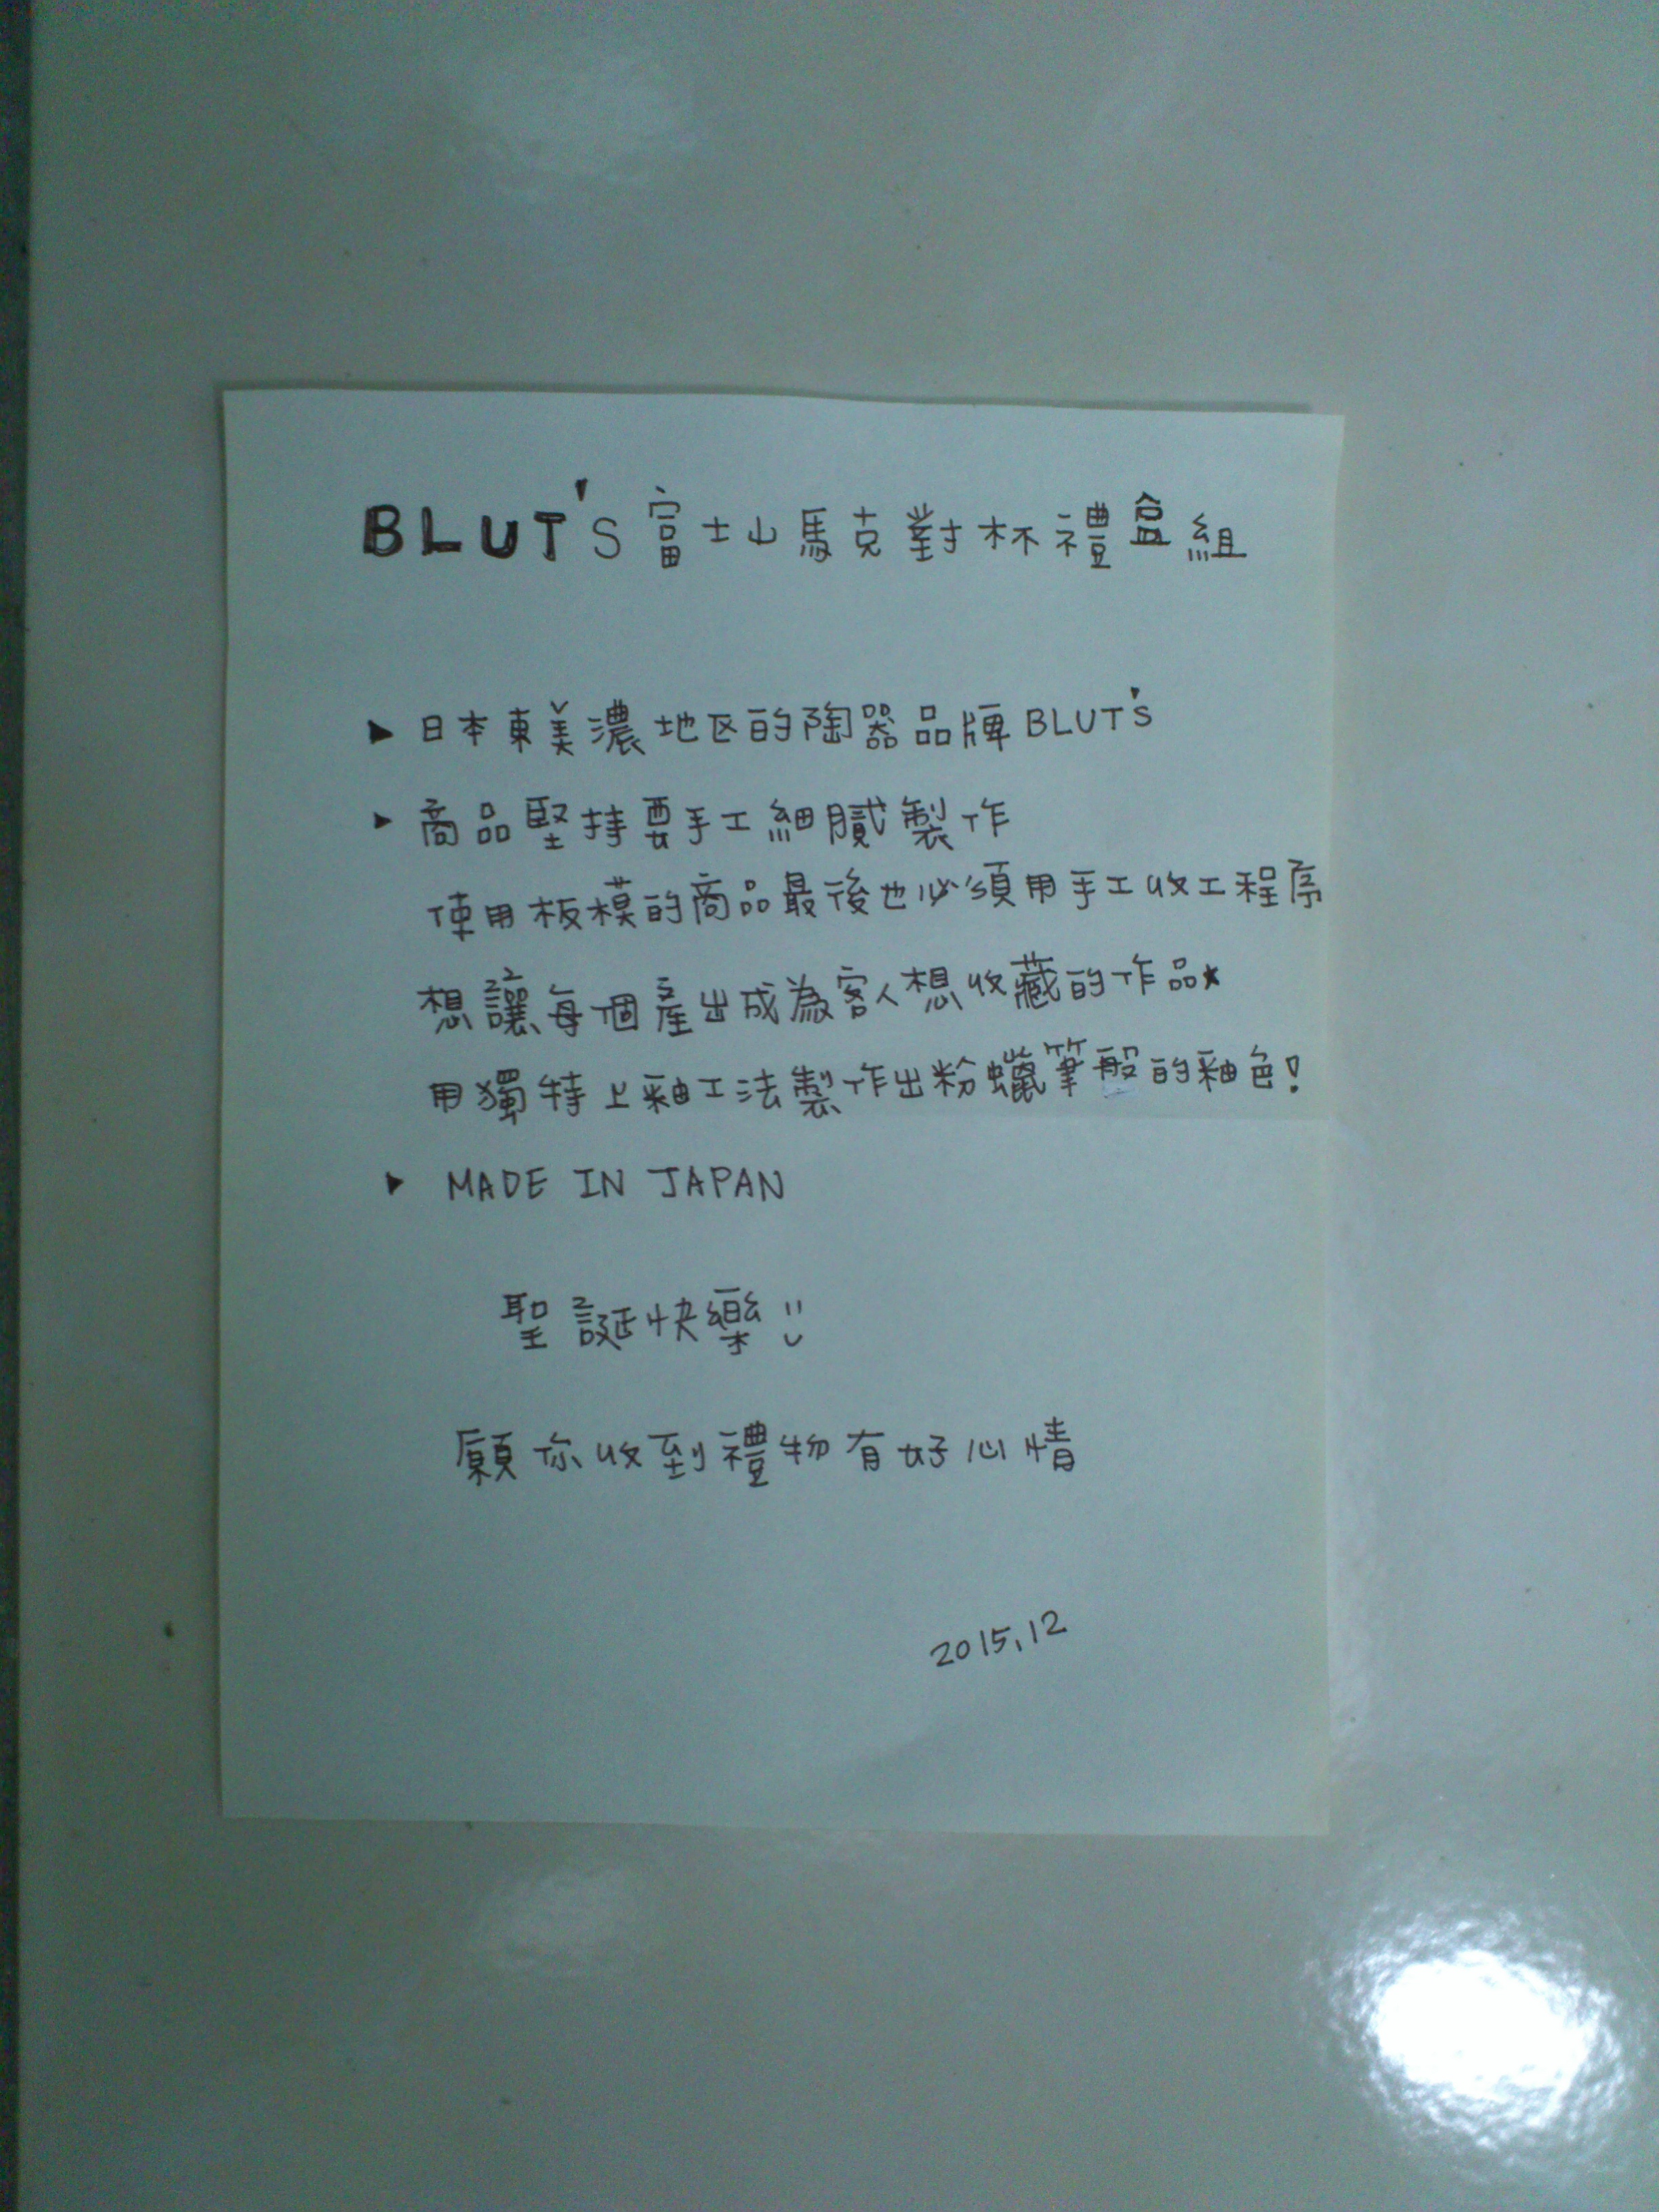 BLUT'S 富士山馬克對杯禮盒組
▶ 日本東美濃地区的陶器品牌 BLUT'S
▶ 商品堅持要手工細膩製作
使用板模的商品最後也必須用手工收工程序
想讓每個產出成為客人想收藏的作品★
用獨特上釉工法製作出粉蠟筆般的釉色!
▶ MADE IN JAPAN
聖誕快樂 ¨̮
願你收到禮物有好心情
2015.12